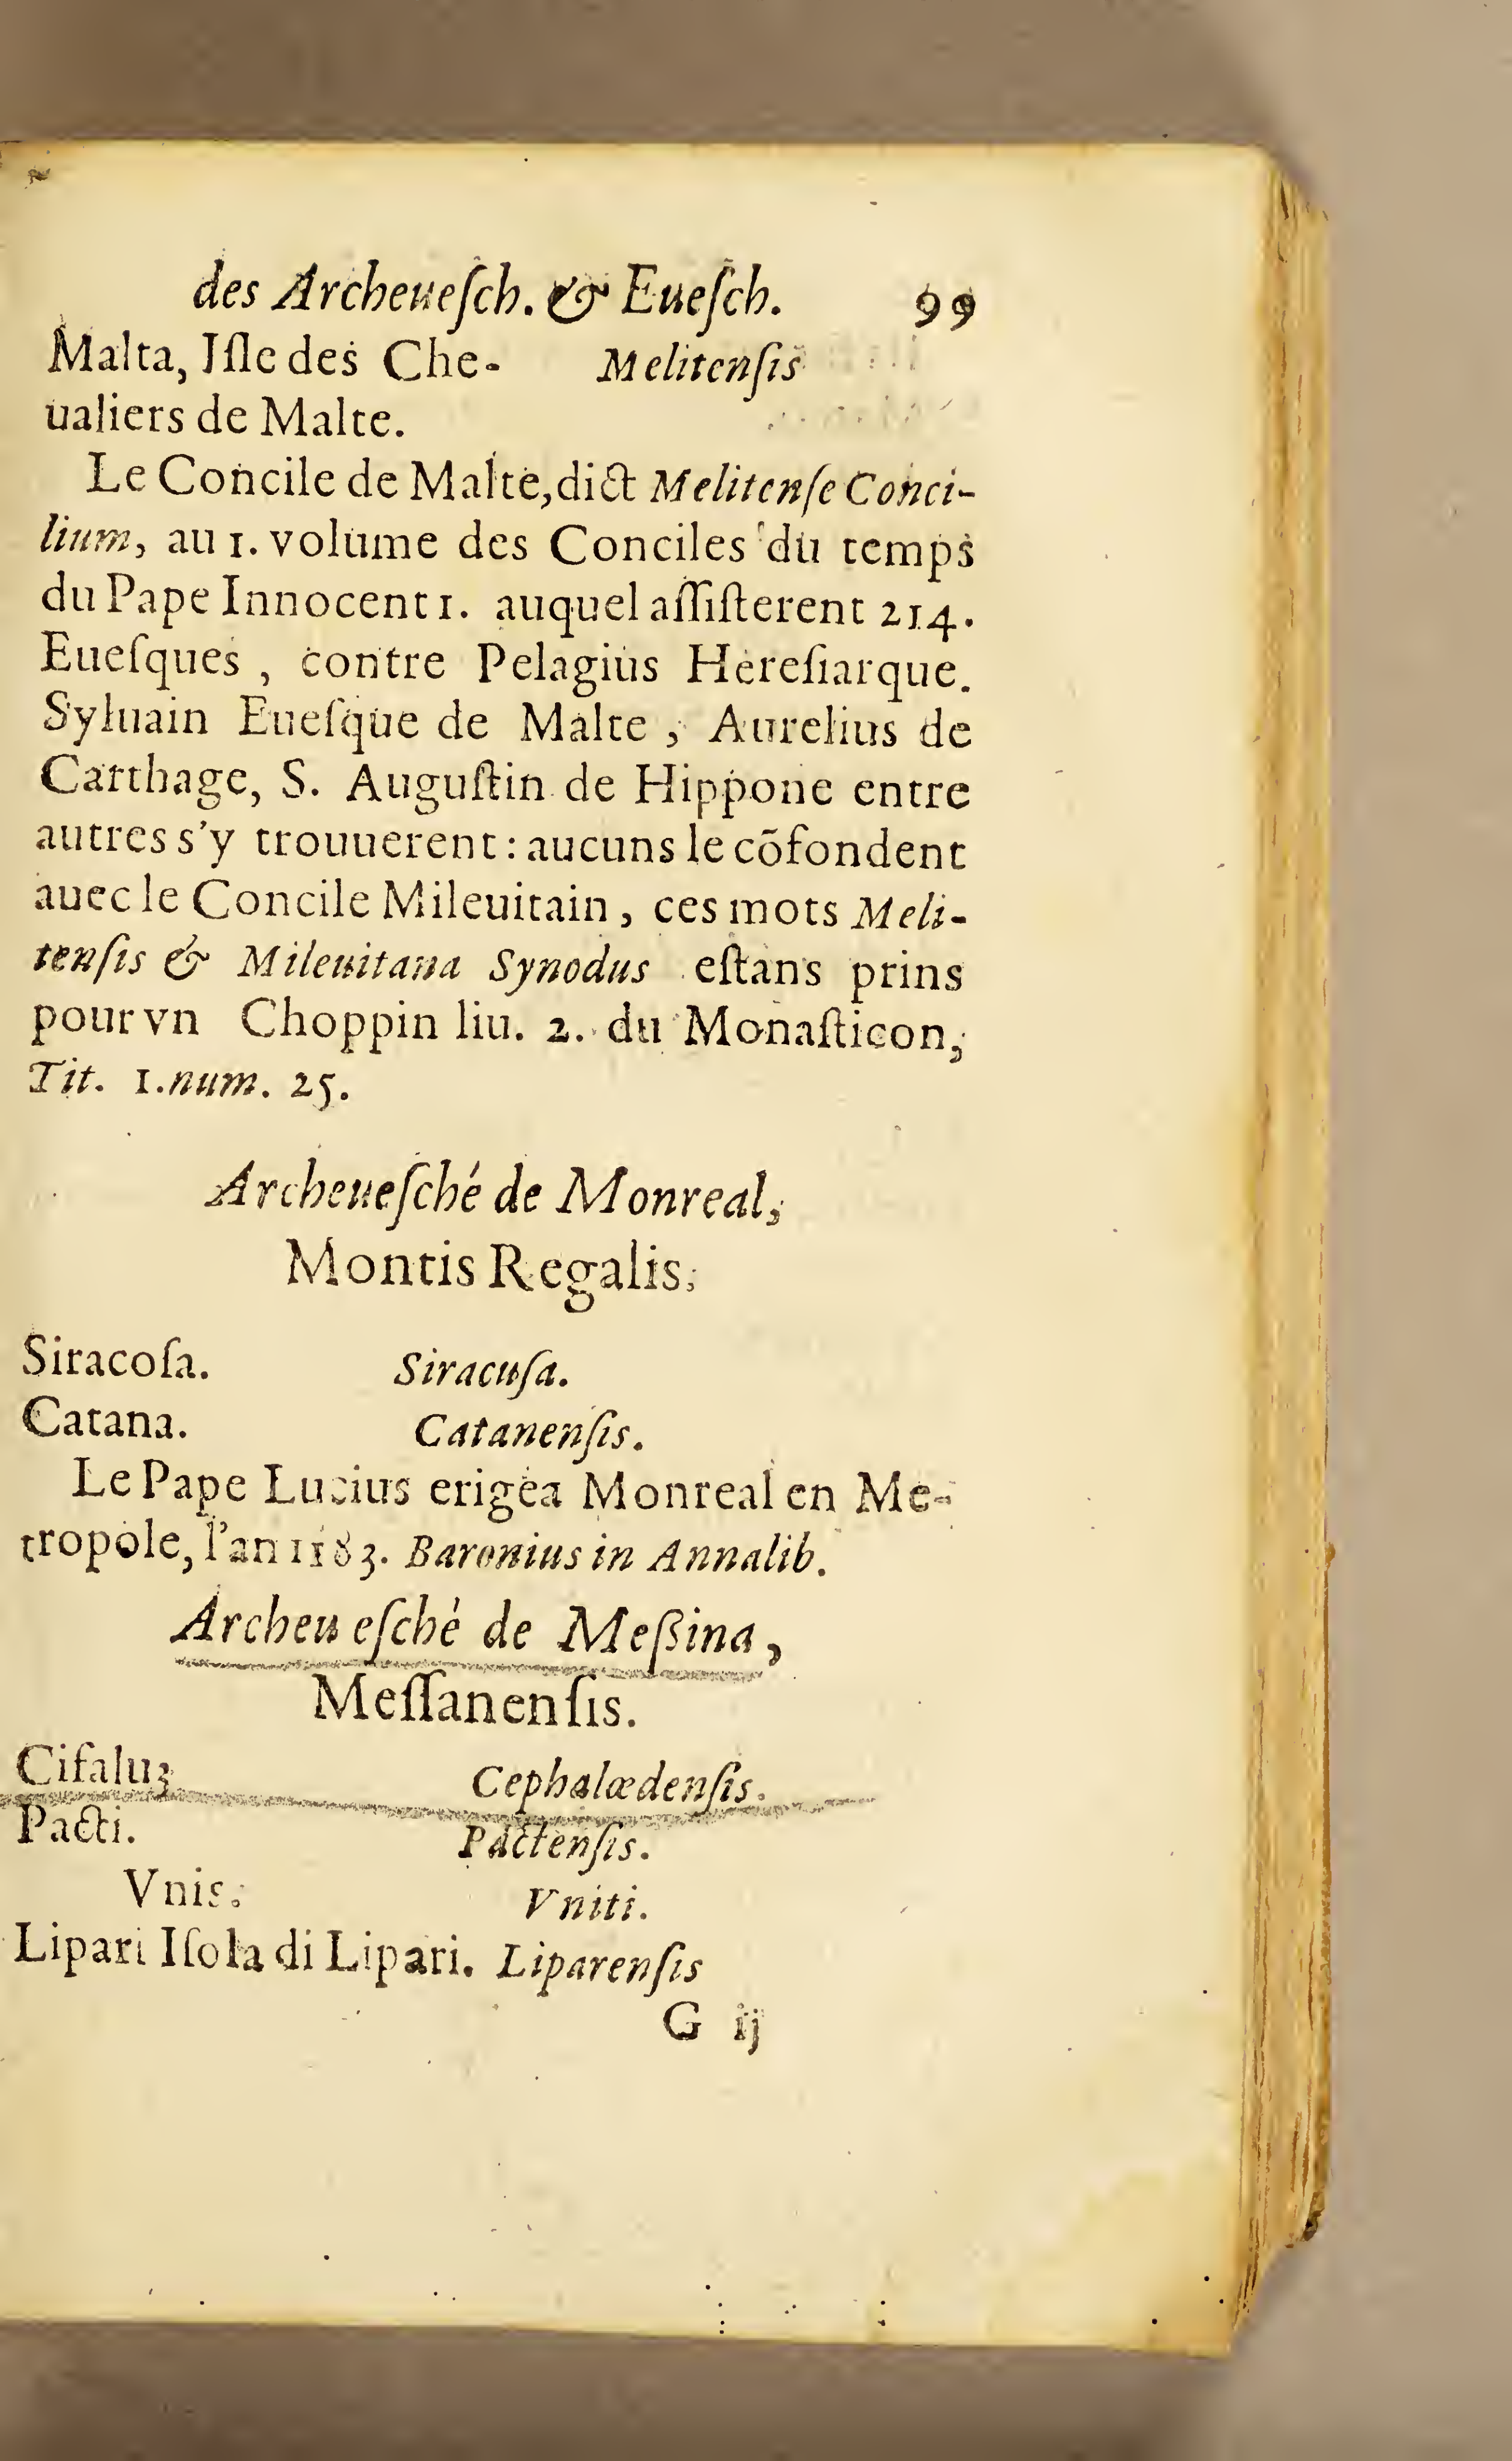 des Archeueſch. & Eueſch. 99
Malta, Iſle des Che- Melitenſis
ualiers de Malte.
Le Concile de Malte, dict Melitenſe Conci-
lium, au 1. volume des Conciles du temps
du Pape Innocent 1. auquel aſſiſterent 214.
Eueſques , contre Pelagius Hereſiarque.
Syluain Eueſque de Malte , Aurelius de
Carthage, S. Auguſtin de Hippone entre
autres s'y trouuerent : aucuns le cõfondent
auec le Concile Mileuitain , ces mots Meli-
tenſis & Mileuitana Synodus eſtans prins
pour vn Choppin liu. 2. du Monaſticon,
Tit. 1. num. 25.
Archeueſché de Monreal,
Montis Regalis.
Siracoſa. Siracuſa.
Catana. Catanenſis.
Le Pape Lucius erigea Monreal en Me-
tropole, l'an 1183. Baronius in Annalib.
Archeueſché de Meßina,
Meſſanenſis.
Cifaluz Cephalœdenſis.
Pacti. Pactenſis.
Vnis. Vniti.
Lipari Iſola di Lipari. Liparenſis
G ij